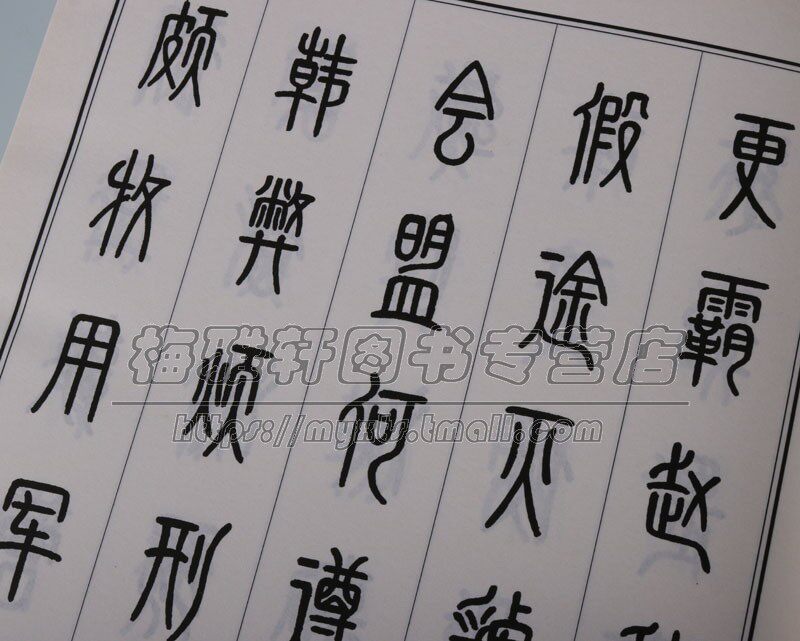 更霸赵
假途灭
会盟何遵
韩弊烦刑
颇牧用军
梅雅轩图书专营店
https://myxts.tmall.com